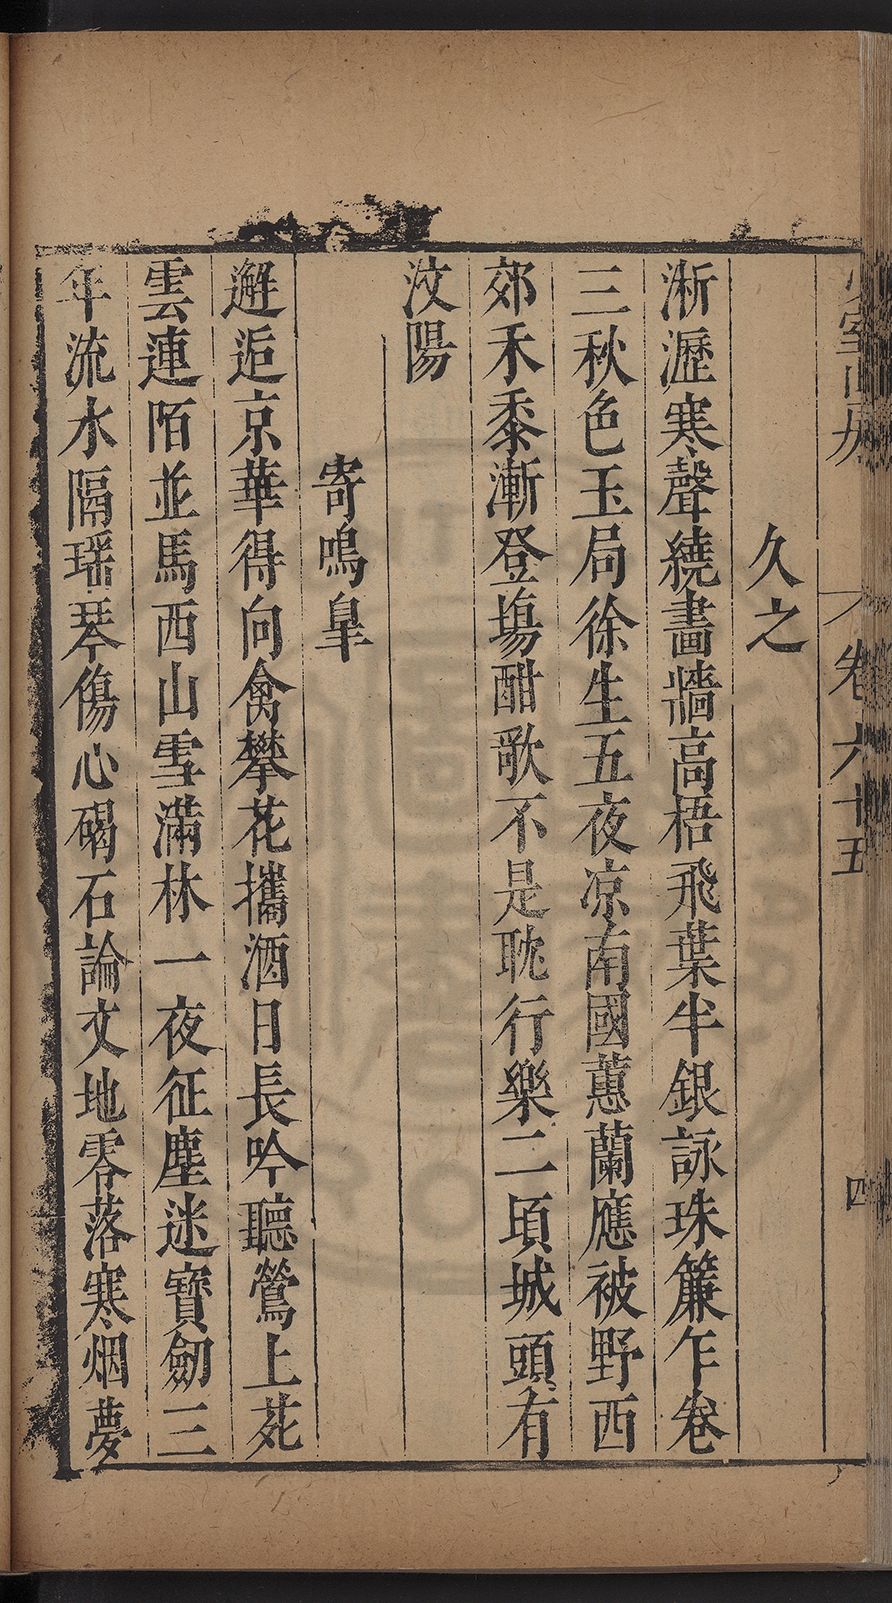 少室山房
卷六十五
四
久之
淅瀝寒聲繞畫牆高梧飛葉半銀詠珠簾乍卷
三秋色玉局徐生五夜凉南國蕙蘭應被野西
郊禾黍漸登塲酣歌不是耽行樂二頃城頭有
汶陽
寄鳴臯
邂逅京華得向禽攀花攜酒日長吟聽鶯上苑
雲連陌並馬西山雪滿林一夜征塵迷寶劒三
年流水隔瑶琴傷心碣石論文地零落寒烟夢